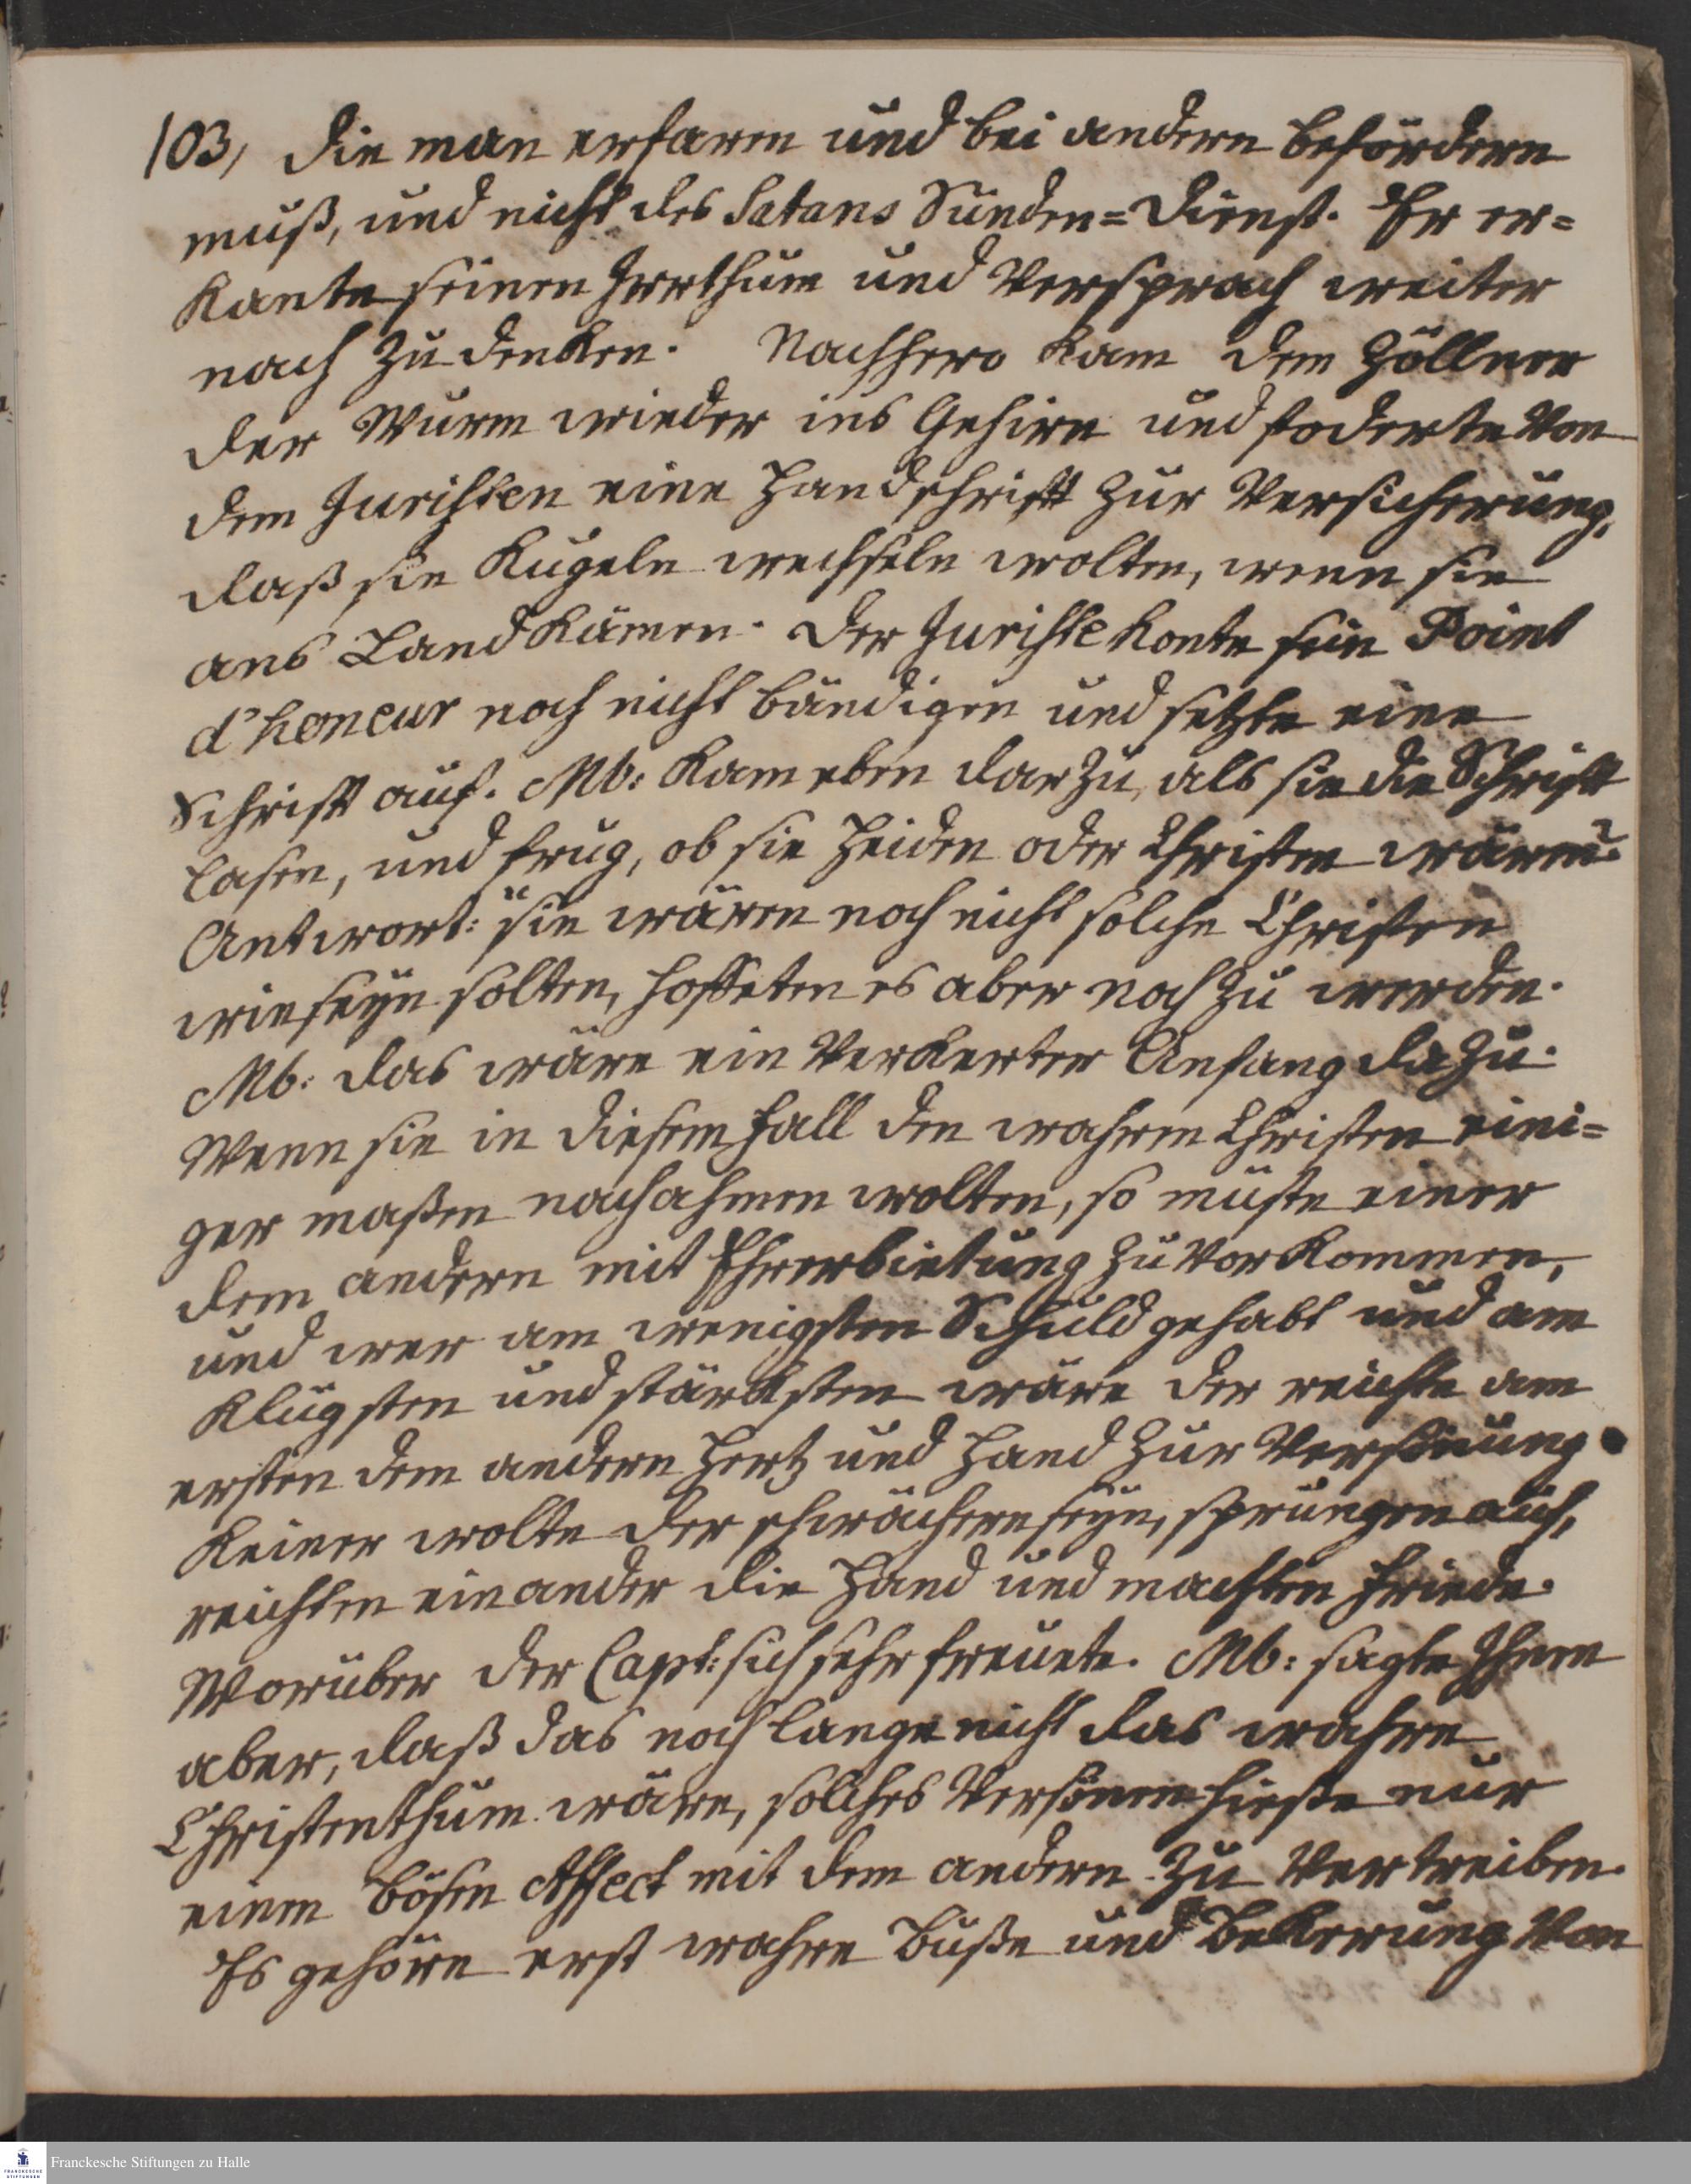 103, die man erfaren und bei andern befördern
muß, und nicht des Satans Sünden=Dienst. Er er=
kante seinen Irrthum und versprach weiter
nach zu denken. Nachhero kam dem Zöllner
der Wurm wieder ins Gehirn und foderte von
dem Juristen eine Handschrift zur Versicherung,
daß sie Kugeln wechseln wolten, wenn sie
ans Land kämen. Der Juriste konte sein Point
d'honeur noch nicht bändigen und setzte eine
Schrift auf. Mb: kam eben darzu, als sie die Schrift
lasen, und frug, ob sie Heiden oder Christen wären?
Antwort: sie wären noch nicht solche Christen
wie seyn solten, hoffeten es aber noch zu werden.
Mb: das wäre ein verkerter Anfang dazu.
Wenn sie in diesem Fall den wahren Christen eini=
ger maßen nachahmen wolten, so müste einer
dem andern mit Ehrerbietung zuvorkommen,
und wer am wenigsten Schuld gehabt und am
klügsten und stärksten wäre der reichte am
ersten dem andern Hertz und Hand zur Versönung.
Keiner wolte der schwächere seyn, sprungen auf,
reichten einander die Hand und machten Friede.
Worüber der Capt: sich sehr freuete. Mb: sagte Ihnen
aber, daß das noch lange nicht das wahre
Christenthum wäre, solches Versönen hieße nur
einen bösen Affect mit dem andern zu vertreiben.
Es gehöre erst wahre Buße und Bekerung von
Franckesche Stiftungen zu Halle
FRANCKESCHE
STIFTUNGEN